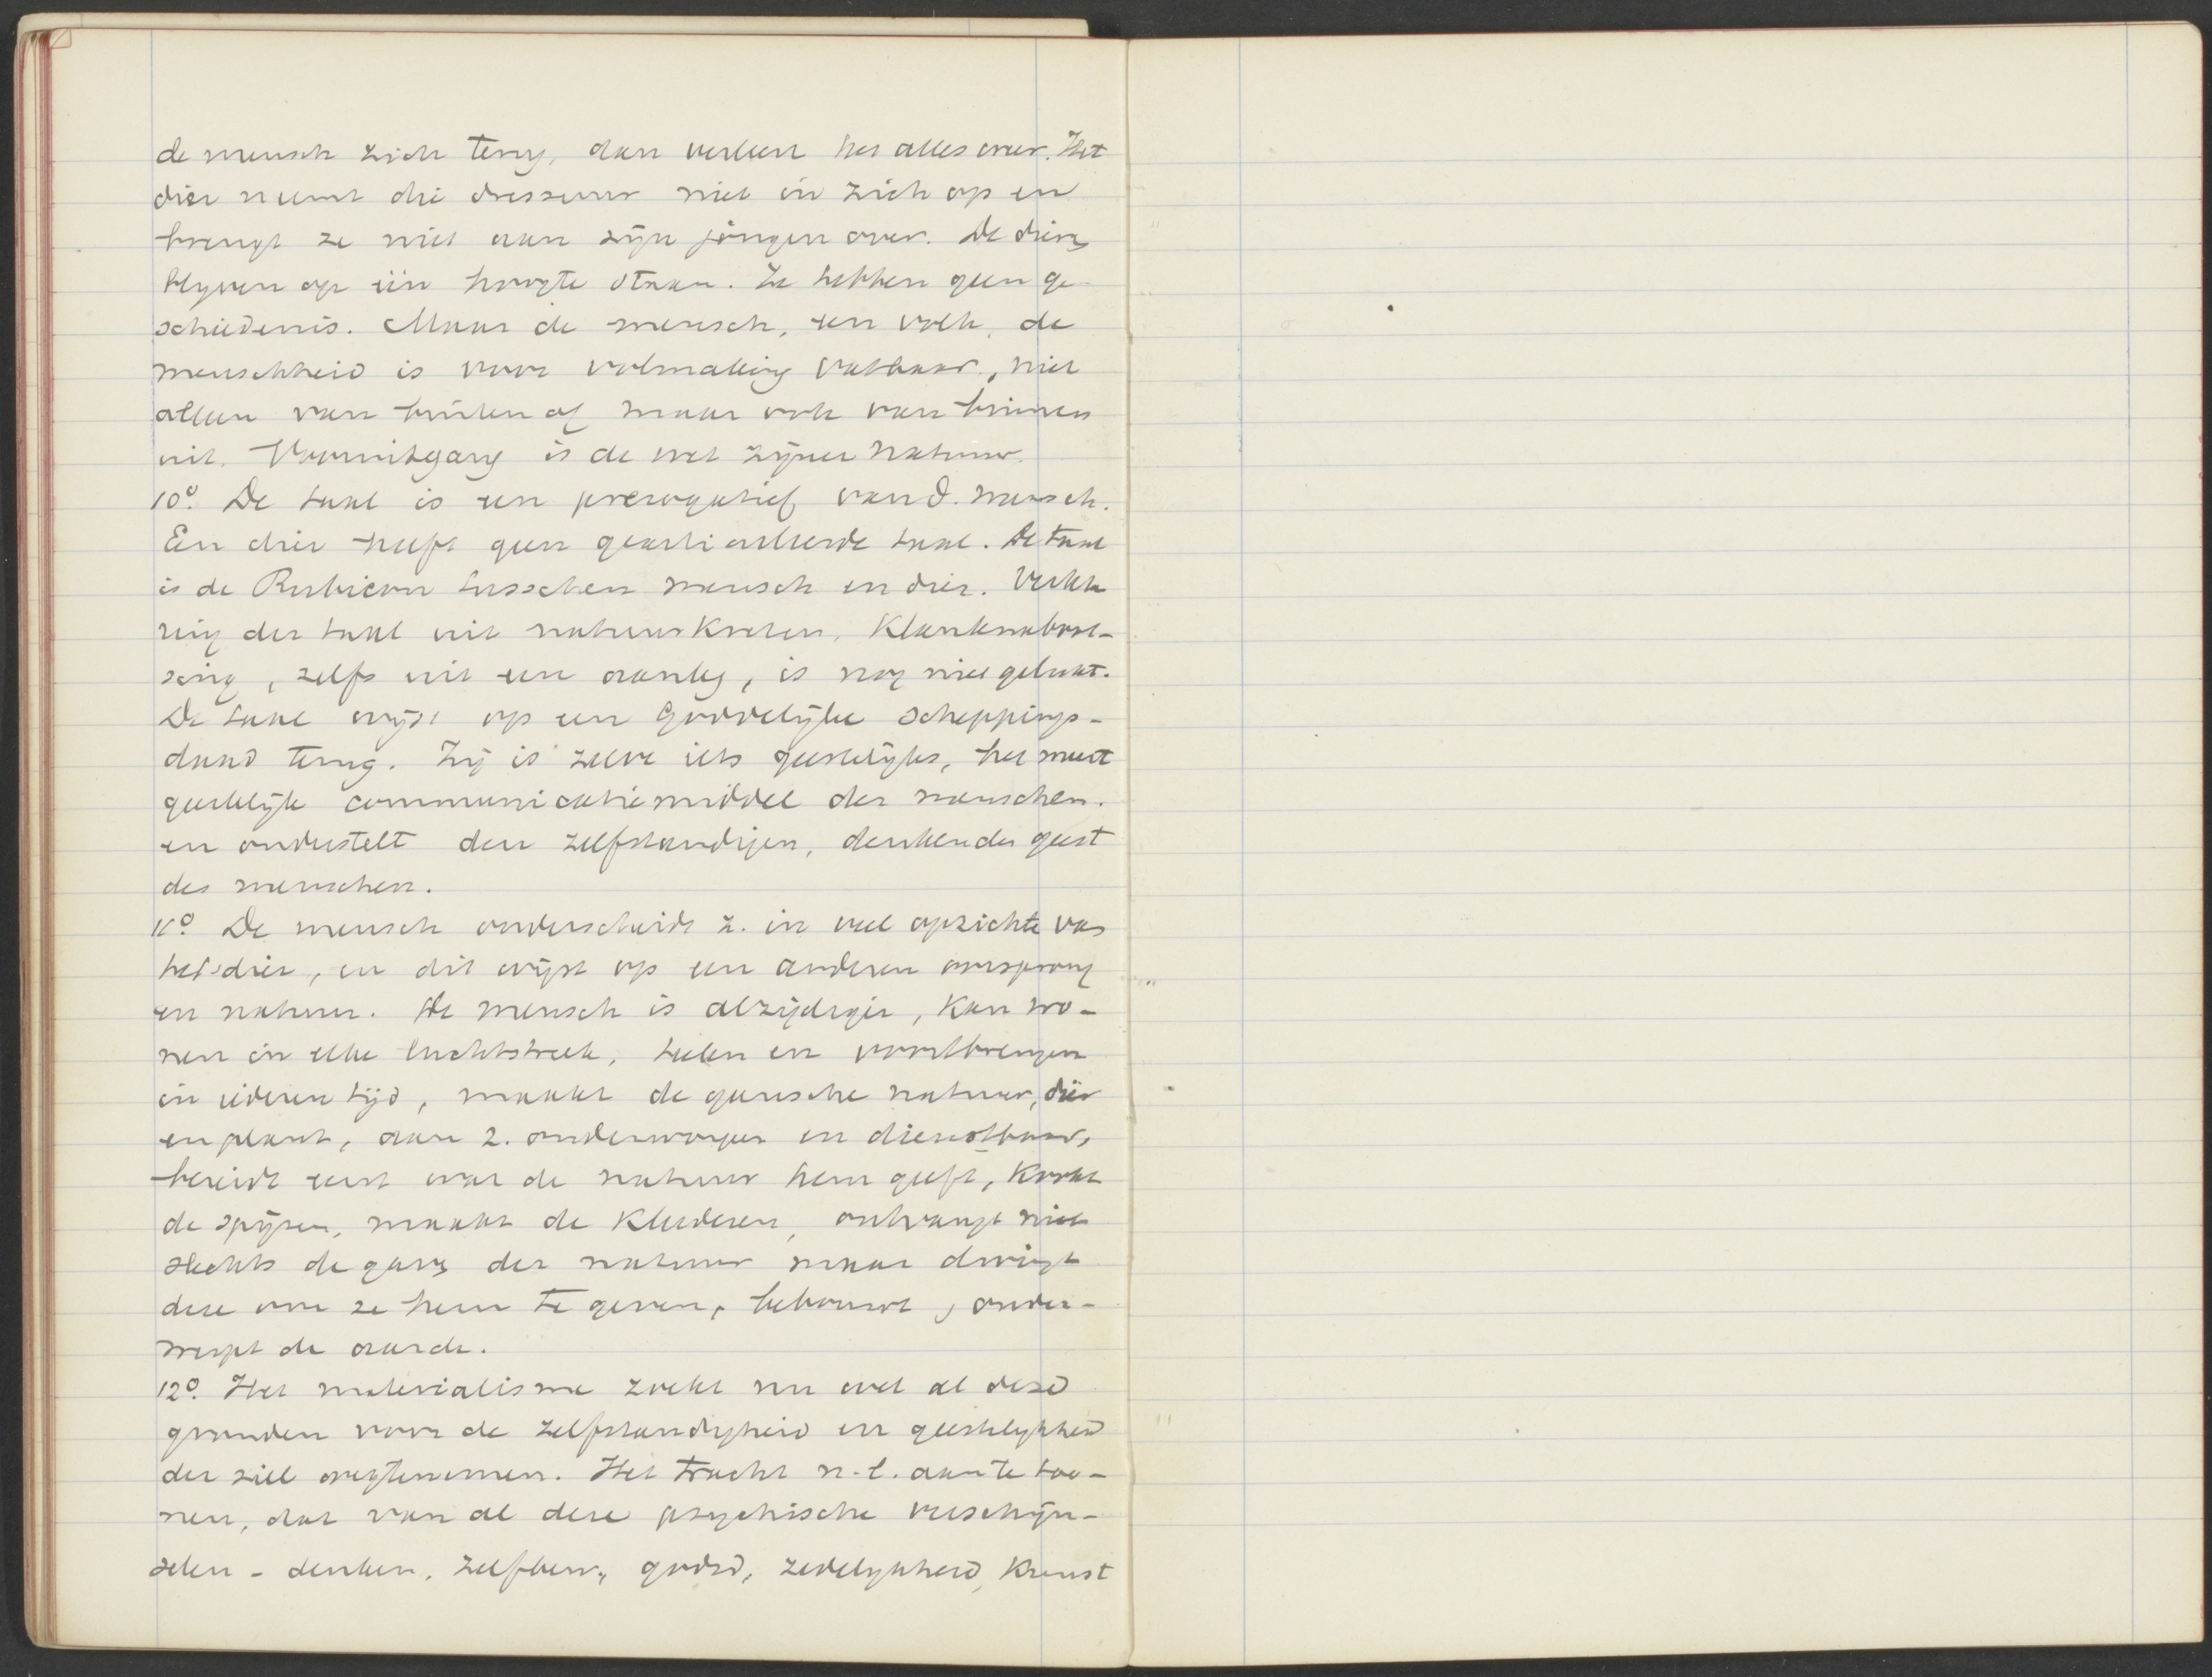 de mensch zich terug, dan verleert het alles weer. Het
dier neemt die dressuur niet in zich op en
brengt ze niet aan zijn jongen over. De dieren
blyven op één hoogte staan. Ze hebben geen ge-
schiedenis. Maar de mensch, een volk, de
menschheid is voor volmaking vatbaar, niet
alleen van buiten af maar ook van binnen
uit. Vooruitgang is de wet zijner natuur.
10º. De taal is een prerogatief van d. mensch.
Een dier heeft geen gearticuleerde taal. De taal
is de Rubicon tusschen mensch en dier. Verkla
ring der taal uit natuurkreten, klanknaboot-
sing, zelfs uit een aanleg, is nog niet gelukt.
De taal wijst op een goddelijke scheppings-
daad terug. Zij is zelve iets geestelijks, het meest
geestelijk communicatiemiddel der menschen.
en onderstelt den zelfstandigen, denkenden geest
des menschen.
11º De mensch onderscheidt z. in veel opzichten van
het dier, en dit wijst op een anderen oorsprong
en natuur. De mensch is alzijdiger, kan wo-
nen in elke luchtstreek, telen en voortbrengen
in iederen tijd, maakt de gansche natuur, dier
en plant, aan z. onderworpen en dienstbaar,
bereidt eerst wat de natuur hem geeft, kookt
de spijzen, maakt de kleederen, ontvangt niet
slechts de gaven der natuur maar dwingt
deze om ze hem te geven, bebouwt, onder-
werpt de aarde.
12º. Het materialisme zoekt nu wel al deze
gronden voor de zelfstandigheid en geestelykheid
der ziel wegtenemen. Het tracht n.l. aan te too-
nen, dat van al deze psychische verschijn-
selen - denken, zelfbew., godsd, zedelykheid, kunst